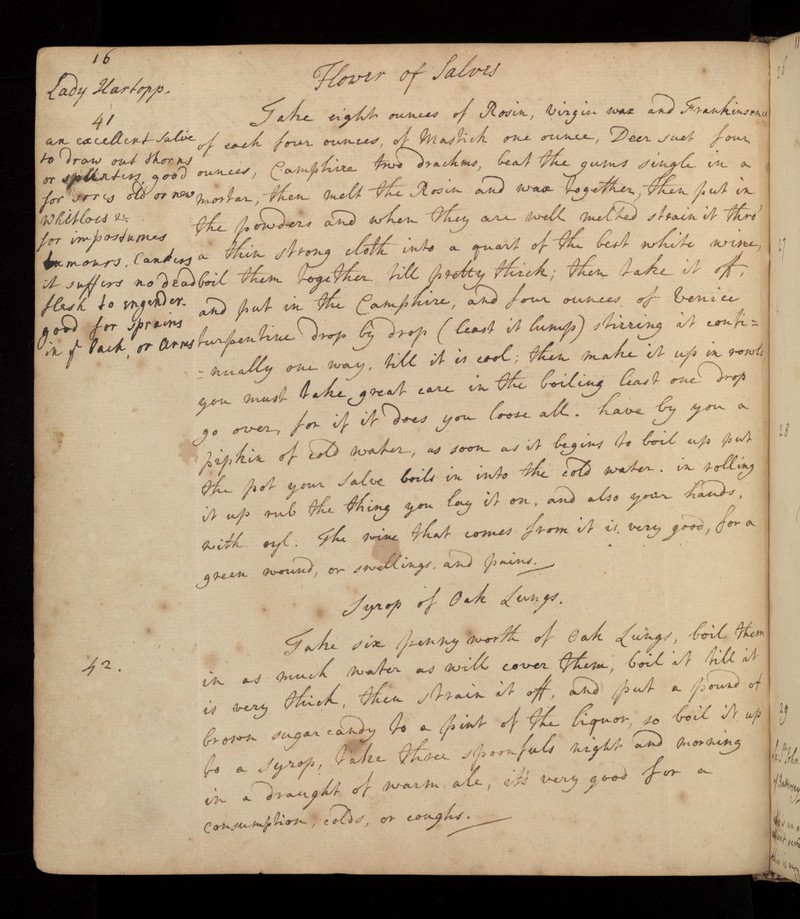 16
Lady Hartopp.
41
an excellent Salve
to draw out thorns
or splinters, good
for sores old or new
Whitloes &c
for impostumes
tumours, Cankers
it suffers no dead
flesh to ingender.
good for Sprains
in ye Back, or Arms
Flower of Salves
Take eight ounces of Rosin, Virgin wax and Frankinsence
of each four ounces, of Mastich one ounce, Deer suet four
ounces, Camphire two drachms, beat the gums single in a
mortar, then melt the Rosin and wax together, then put in
the powders and when they are well melted strain it thro'
a thin strong cloth into a quart of the best white wine,
boil them together till pretty thick; then take it off,
and put in the Camphire, and four ounces of Venice
turpentine drop by drop (least it lump) stirring it conti=
=nually one way, till it is cool; then make it up in rowls
you must take great care in the boiling least one drop
go over, for if it does you loose all. have by you a
pipkin of cold water, as soon as it begins to boil up put
the pot your Salve boils in into the cold water. in rolling
it up rub the thing you lay it on, and also your hands,
with oyl. The wine that comes from it is very good, for a
green wound, or swellings, and pains.
Syrop of Oak Lungs.
42.
Take six penny worth of Oak Lungs, boil them
in as much water as will cover them, boil it till it
is very thick, then strain it off, and put a pound of
brown sugar candy to a pint of the liquor, so boil it up
to a syrop, take three spoonfuls night and morning
in a draught of warm ale, it's very good for a
consumption, colds, or coughs.
28
29